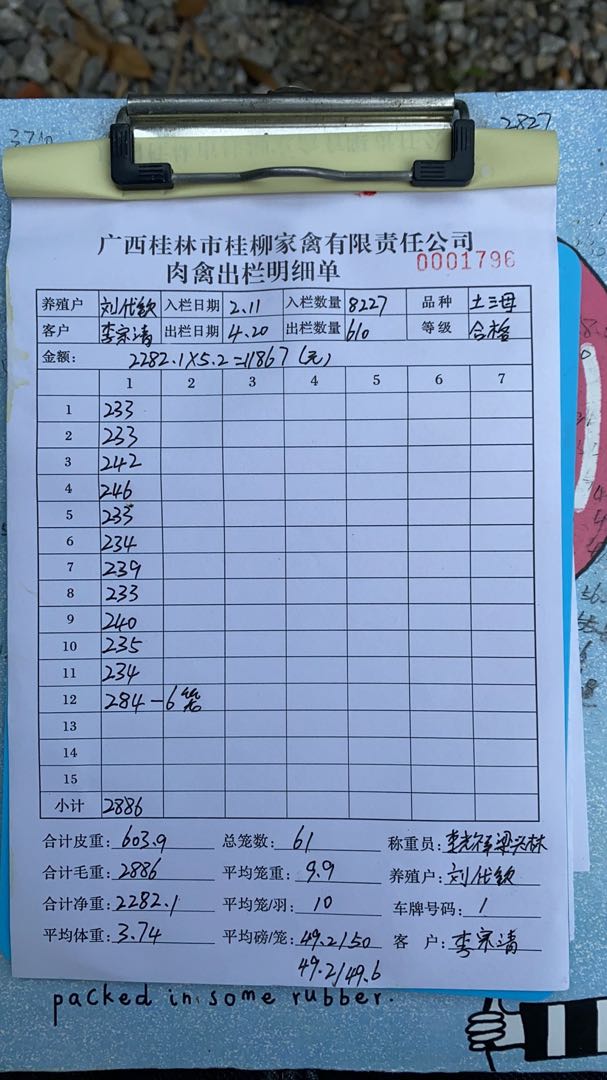 3710
2827
广西桂林市桂柳家禽有限责任公司
肉禽出栏明细单 0001796
养殖户 刘代钦 入栏日期 2.11 入栏数量 8227 品种 土三母
客户 李宗清 出栏日期 4.20 出栏数量 610 等级 合格
金额: 2282.1×5.2=11867(元)
1 2 3 4 5 6 7
1 233
2 233
3 242
4 246
5 233
6 234
7 239
8 233
9 240
10 235
11 234
12 284-6笼
13
14
15
小计 2886
合计皮重: 603.9 总笼数: 61 称重员:
合计毛重: 2886 平均笼重: 9.9 养殖户: 刘代钦
合计净重: 2282.1 平均笼/羽: 10 车牌号码: 1
平均体重: 3.74 平均磅/笼: 49.2/50 客 户: 李宗清
49.2/49.6
packed in some rubber.